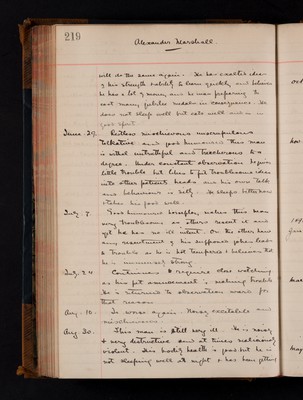 219
Alexander Marshall.
will do the same again. He has exalted ideas
of his strength & ability to learn quickly and believes
he has a lot of money and he was preparing to
cast many jubilee medals in consequence. He
does not sleep well but eats well and is in
good spirit.
June 29. Restless mischievous unscrupulous
talkative and good humoured this man
is withal untruthful and treacherous to a
degree. Under constant observation he gives
little trouble but likes to put troublesome ideas
into other patients heads and his own talk
and behaviour is silly. He sleeps better now
& takes his food well.
July 7. Good humoured horseplay makes this man
very troublesome as others resent it and
yet he has no ill intent. On the other hand
any resentment of his supposed jokes leads
to trouble as he is hot tempered & believes that
he is immensely strong.
July 24 Continues & requires close watching
as his pet amusement is making trouble
He is returned to observation ward for
that reason.
Aug. 10. Is worse again. Noisy excitable and
mischievous.
Aug 30. This man is still very ill. He is noisy
& very destructive and at times maliciously
violent. His bodily health is good but he is
not sleeping well at night & has been getting